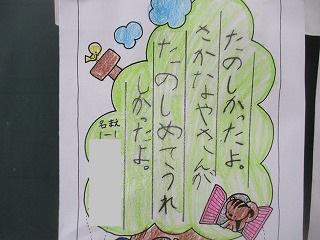 たのしかったよ。
さかなやさんが
たのしめてうれ
しかったよ。
名まえ
1-1